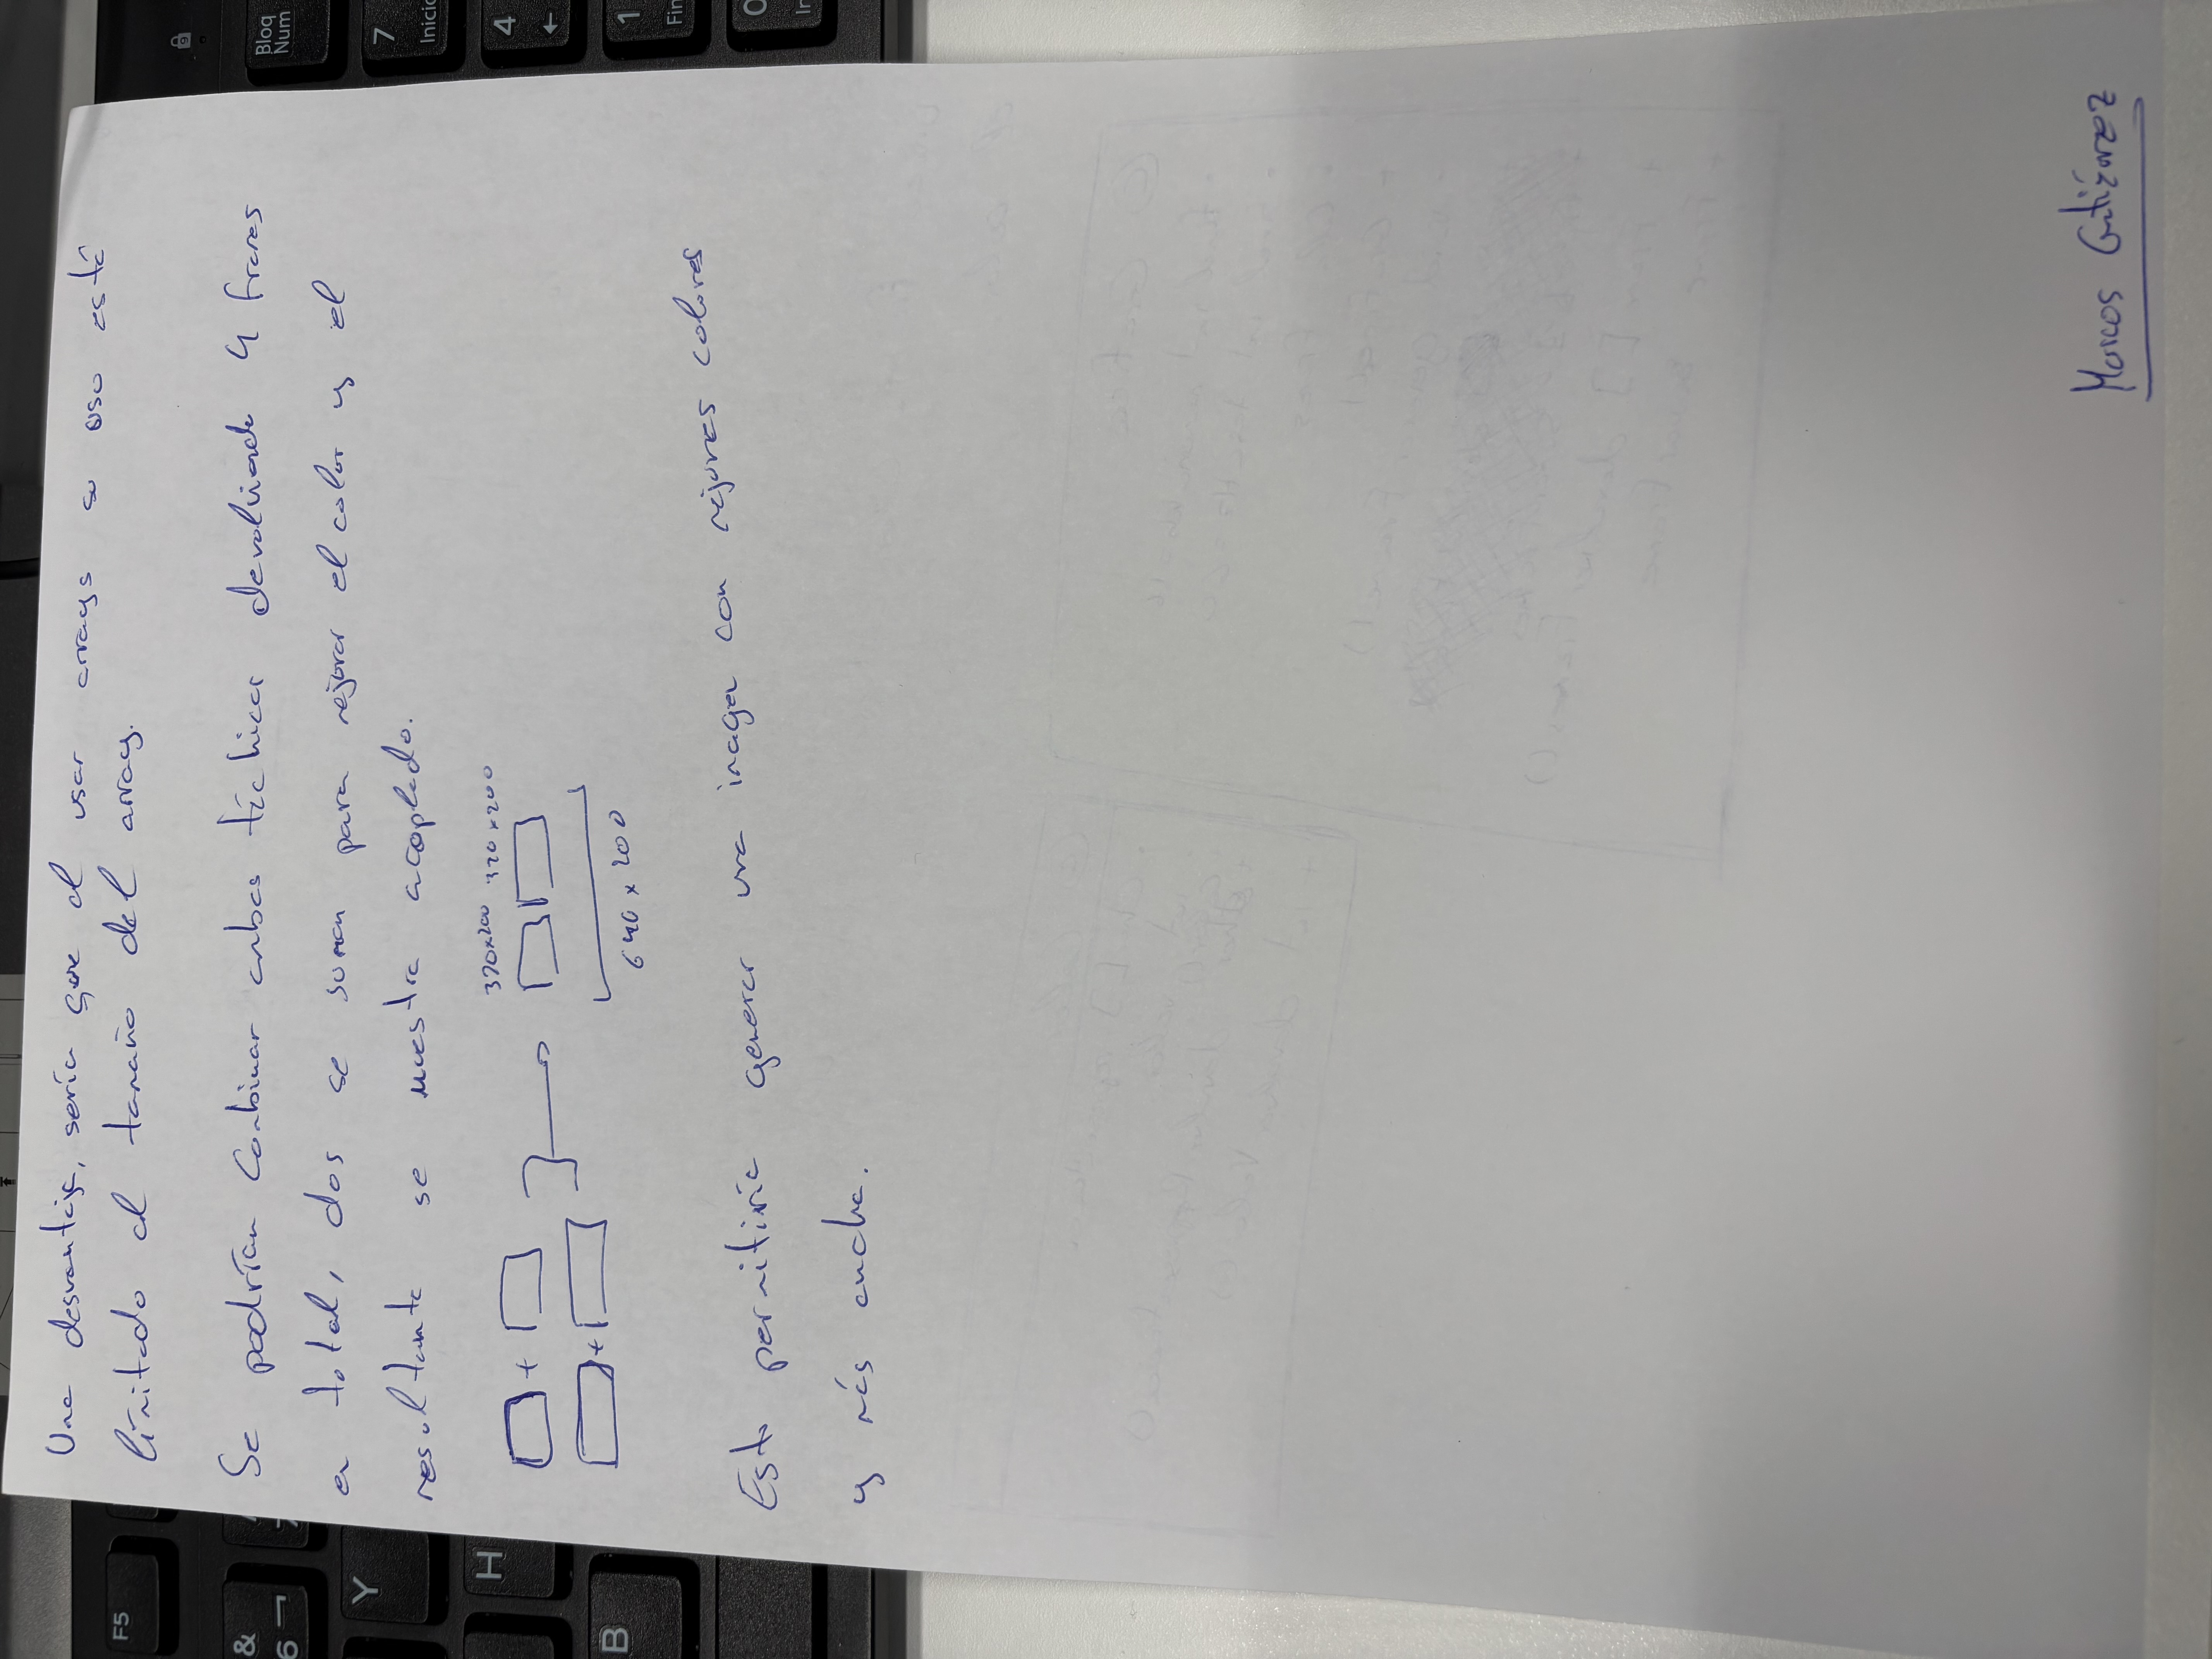 Una desventaja, sería que al usar arrays su uso está
limitado al tamaño del array.
Se podrían combinar ambas técnicas devolviendo 4 frames
en total, dos se suman para mejorar el color y el
resultante se muestra acoplado.
320x200 320x200
+
+
640 x 200
Esto permitiría generar una imagen con mejores colores
y más ancha.
Marcos Gutiérrez
F5
&
6 ¬
Y
H
B
9
Bloq
Num
7
Inicio
4
←
1
Fin
0
In